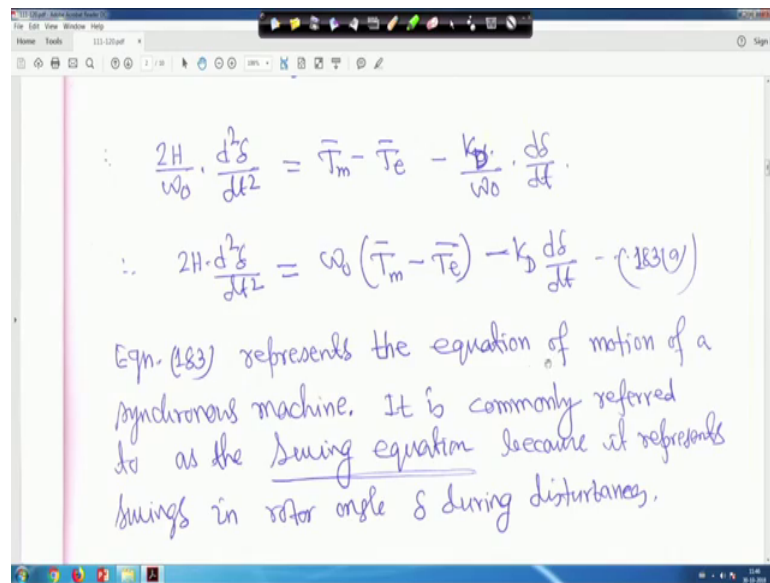 111-120.pdf - Adobe Acrobat Reader DC
File Edit View Window Help
Home Tools 111-120.pdf × Sign
2 / 10
∴ 2H/ω₀ · d²δ/dt² = T̄m - T̄e - K_D/ω₀ · dδ/dt.
∴ 2H·d²δ/dt² = ω₀(T̄m - T̄e) - K_D dδ/dt - (183(a))
Eqn. (183) represents the equation of motion of a
synchronous machine. It is commonly referred
to as the swing equation because it represents
swings in rotor angle δ during disturbances.
11:46